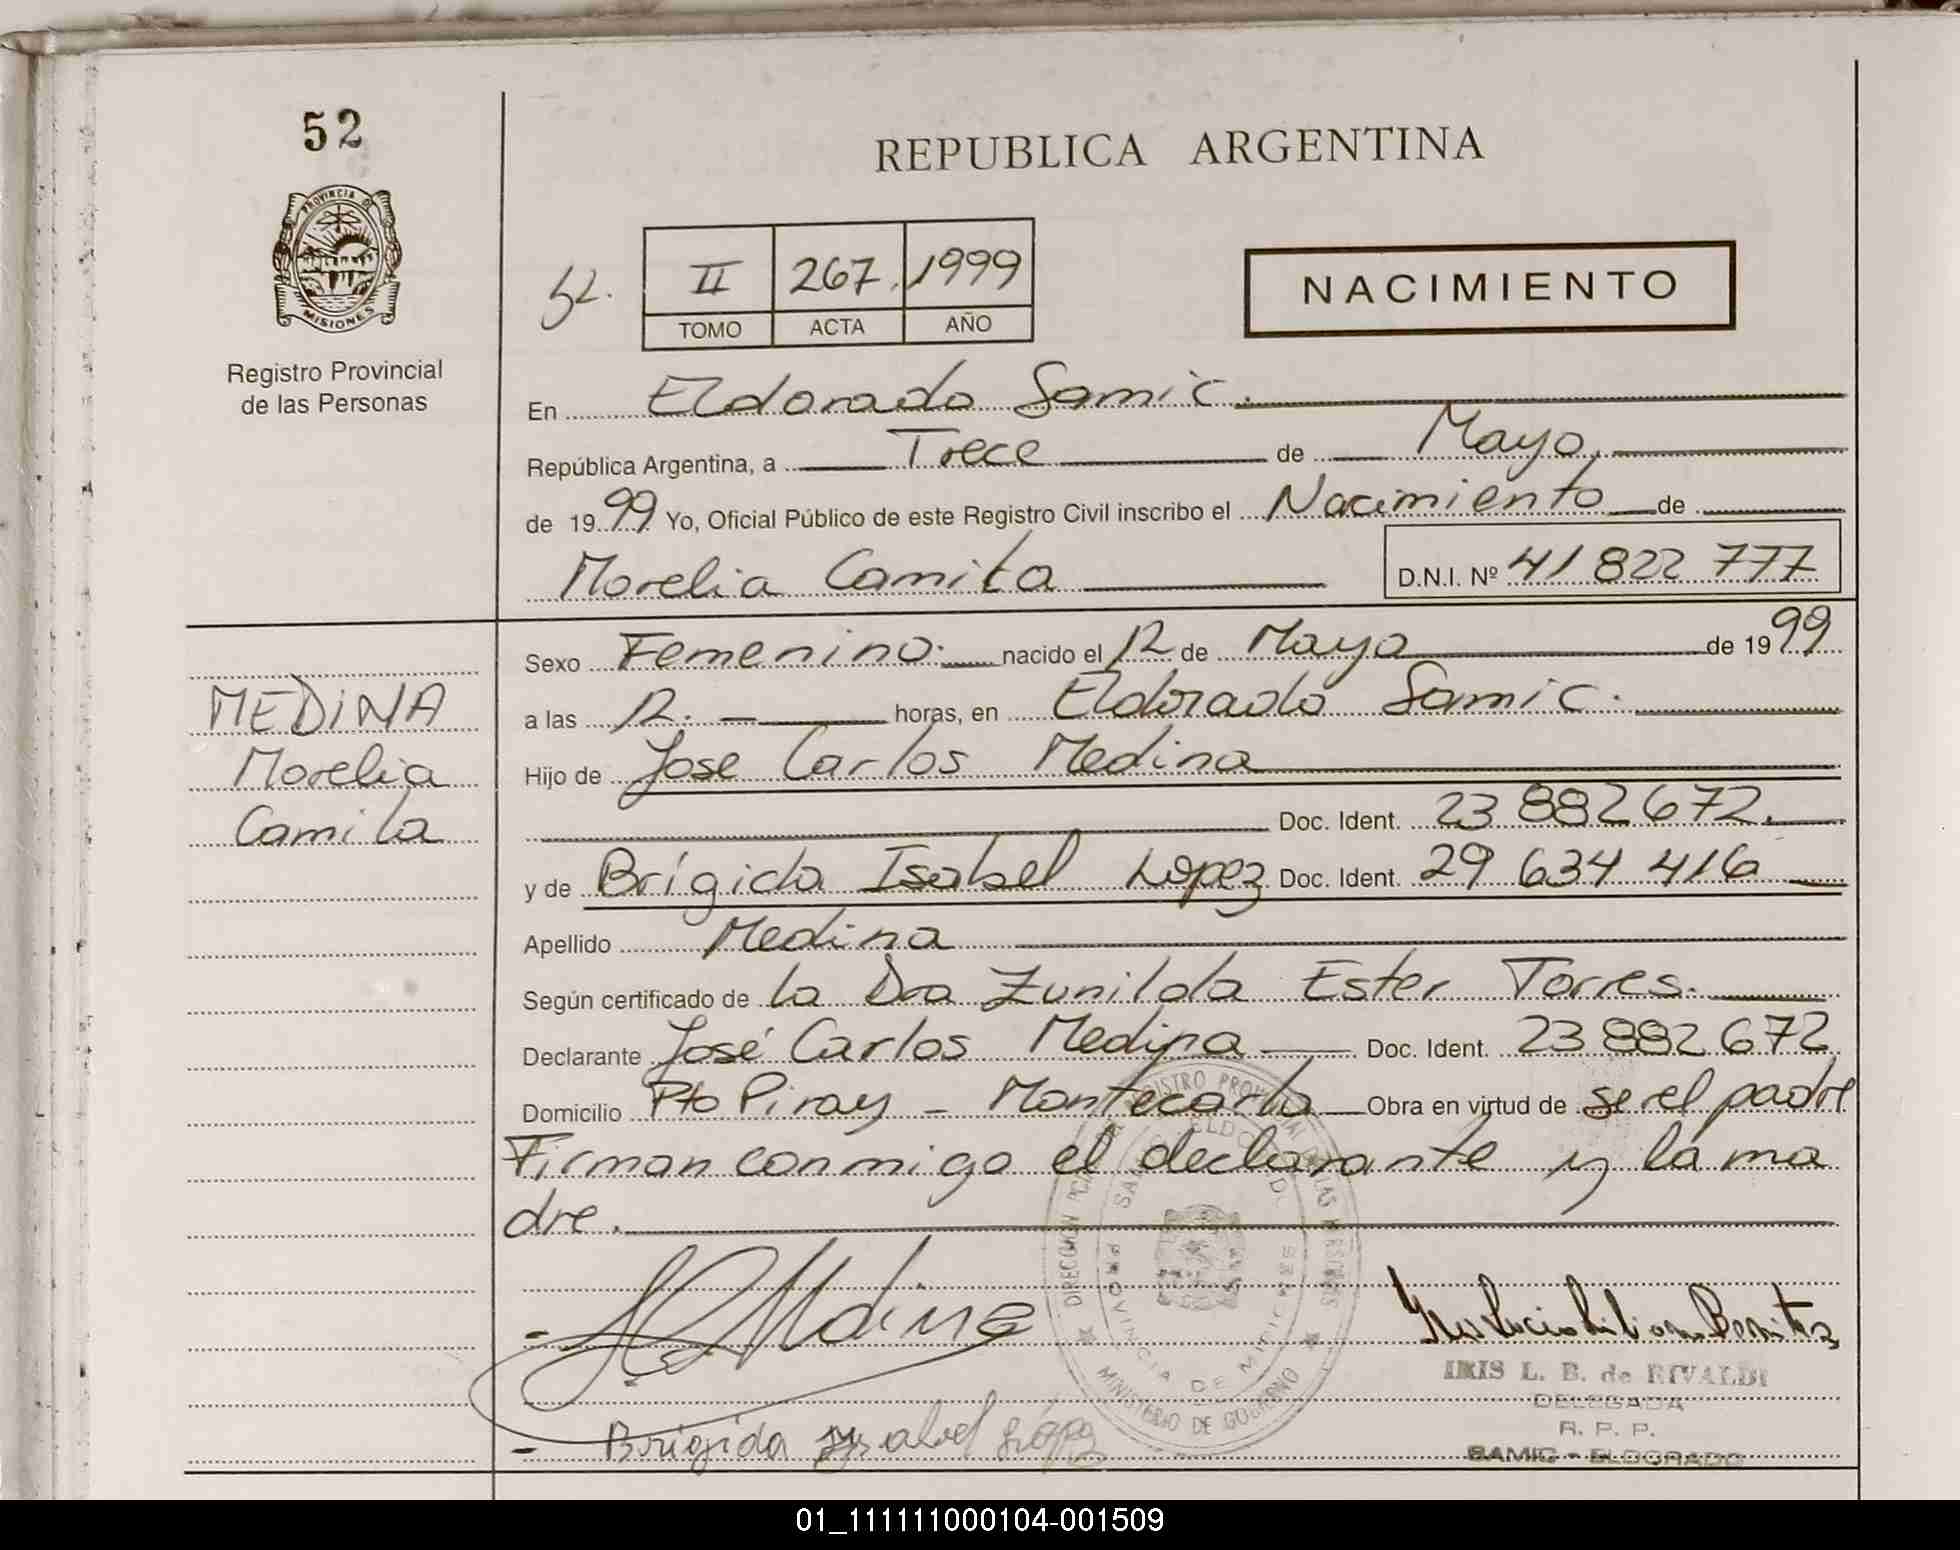 52
REPUBLICA ARGENTINA
PROVINCIA DE
MISIONES
Registro Provincial
de las Personas
52.
II 267. 1999
TOMO ACTA AÑO
NACIMIENTO
En Eldorado Samic.
República Argentina, a Trece de Mayo.
de 1999 Yo, Oficial Público de este Registro Civil inscribo el Nacimiento de
Morelia Camila
D.N.I. Nº 41 822 777
Sexo Femenino. nacido el 12 de Mayo de 1999
a las 12. horas, en Eldorado Samic.
Hijo de Jose Carlos Medina
Doc. Ident. 23 882 672.
y de Brígida Isabel Lopez Doc. Ident. 29 634 416
Apellido Medina
Según certificado de la Dra Zunilda Ester Torres.
Declarante José Carlos Medina Doc. Ident. 23 882 672
Domicilio Pto Piray - Montecarlo Obra en virtud de ser el padre
Firman conmigo el declarante y la ma
dre.
MEDINA
Morelia
Camila
Medina
Brigida Ysabel López
IRIS L. B. de RIVALDI
DELEGADA
R. P. P.
SAMIC - ELDORADO
MINISTERIO DE GOBIERNO
PROVINCIA DE MISIONES
01_111111000104-001509